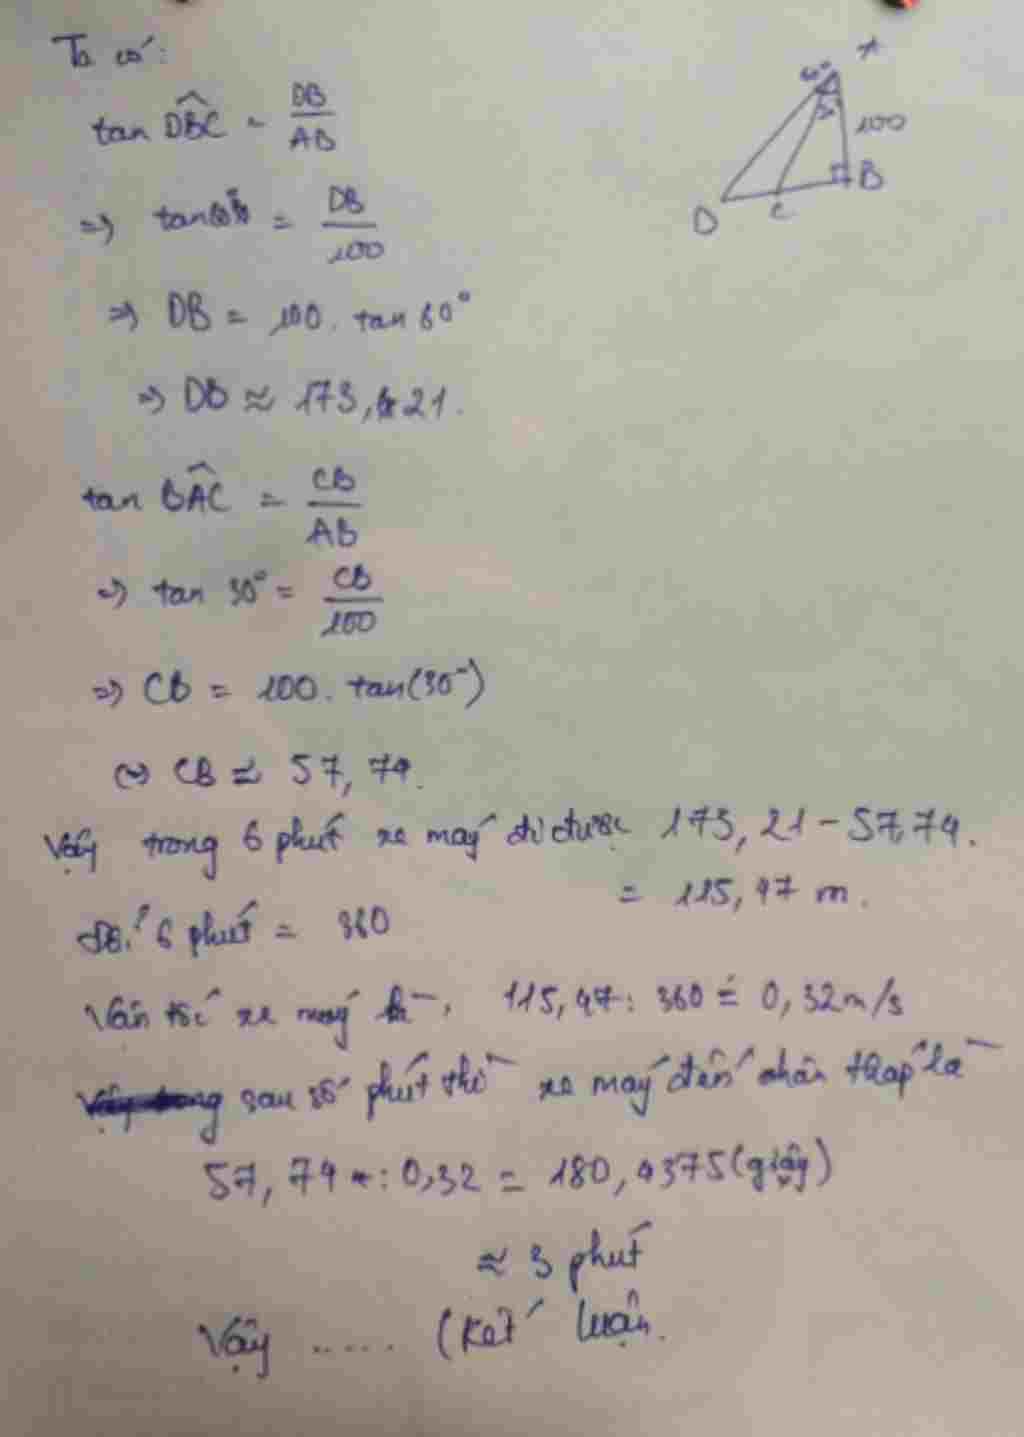 Ta có:
tan DBC = DB/AB
A
60°
100
B
C
D
=> tan 60° = DB/100
=> DB = 100. tan 60°
=> DB ≈ 173,21.
tan BAC = CB/AB
=> tan 30° = CB/100
=> CB = 100. tan(30°)
CB ≈ 57,74.
Vậy trong 6 phút xe máy đi được 173,21 - 57,74.
= 115,47 m.
đổi 6 phút = 360
Vận tốc xe máy là 115,47 : 360 = 0,32 m/s
sau số phút thì xe máy đến chân tháp là
57,74 : 0,32 = 180,4375 (giây)
≈ 3 phút
Vậy ..... (Kết luận.